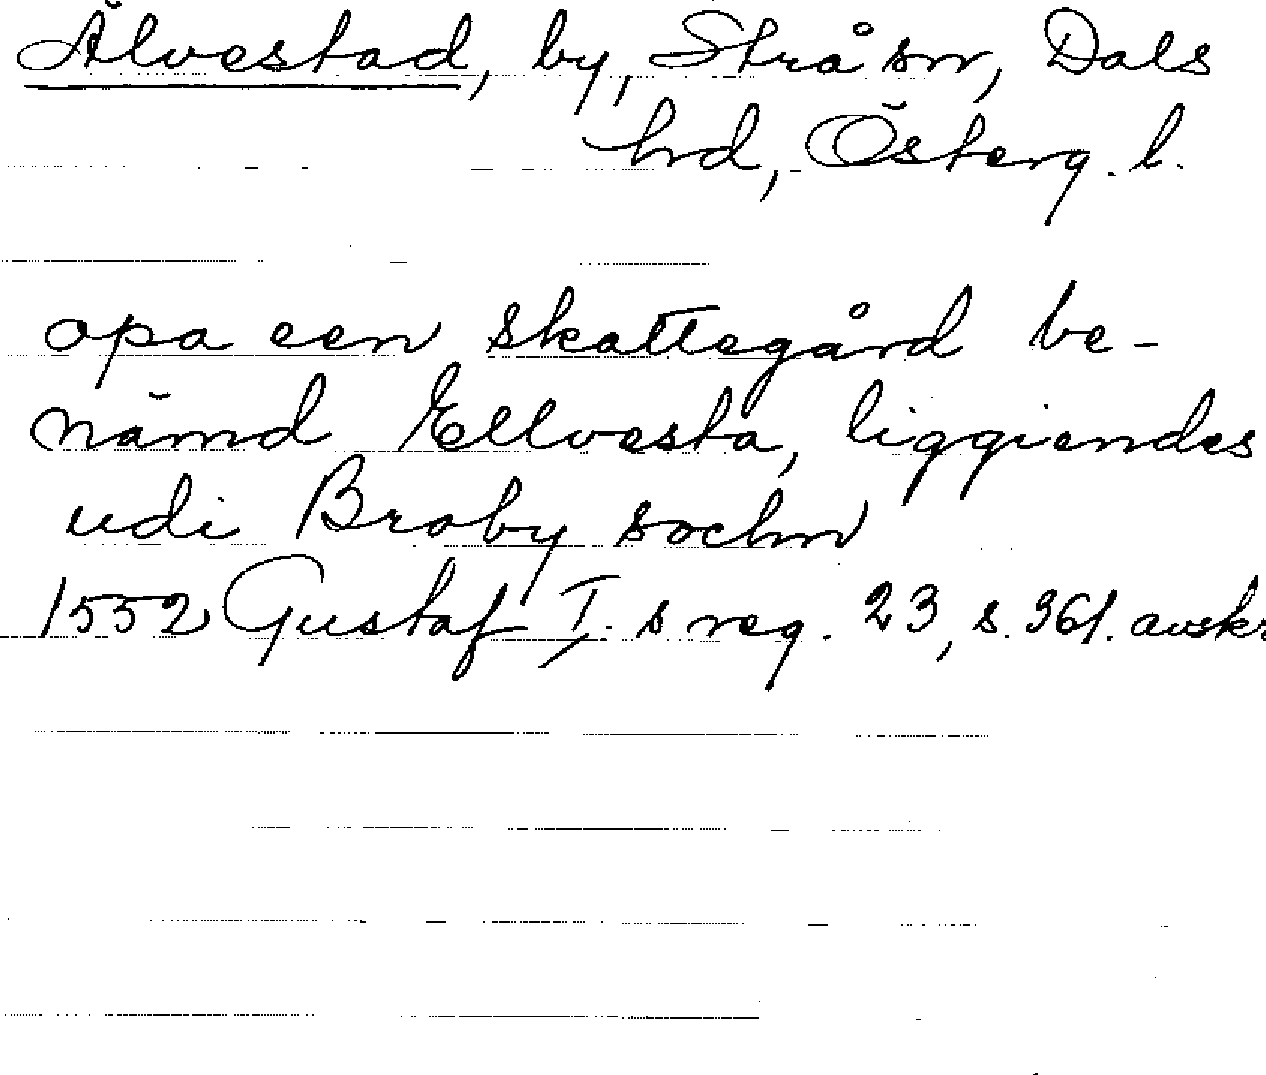 Älvestad, by, Strå sn, Dals
hrd, Österg. l.
opa een skattegård be-
nämd Ellvesta, liggiendes
udi Broby sochn
1552 Gustaf I. s reg. 23, s. 361. avskr.